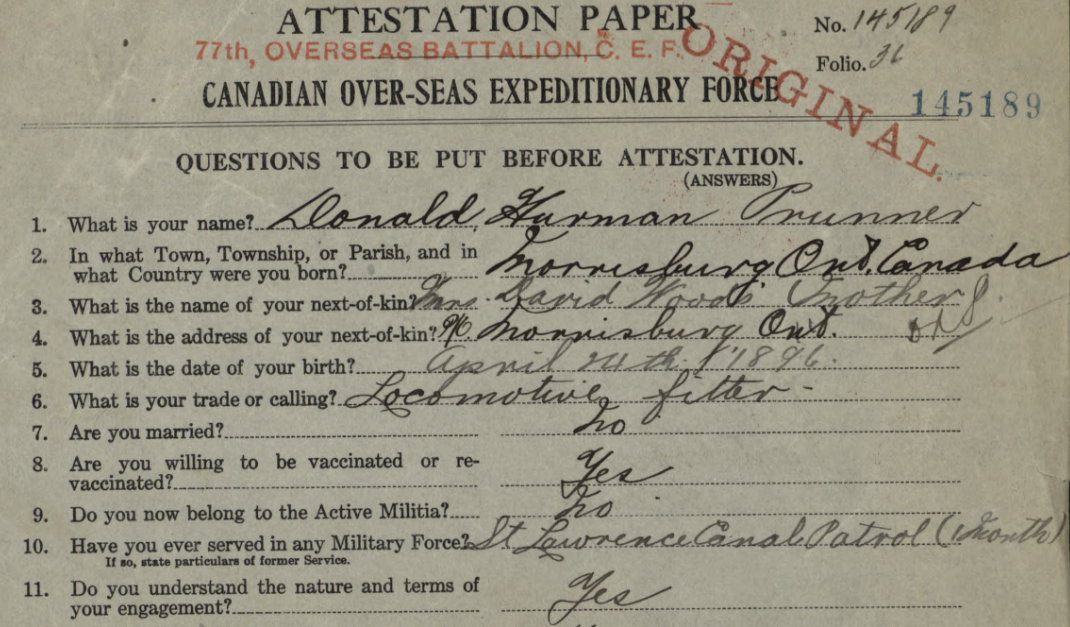 ATTESTATION PAPER
No. 145189
77th, OVERSEAS BATTALION, C. E. F.
ORIGINAL.
Folio. 36
CANADIAN OVER-SEAS EXPEDITIONARY FORCE
145189
QUESTIONS TO BE PUT BEFORE ATTESTATION.
(ANSWERS)
1. What is your name? Donald Harman Prunner
2. In what Town, Township, or Parish, and in
what Country were you born? Morrisburg Ont. Canada
3. What is the name of your next-of-kin? Mrs. David Woods (Mother)
4. What is the address of your next-of-kin? Morrisburg Ont.
5. What is the date of your birth? April 1896.
6. What is your trade or calling? Locomotive fitter -
7. Are you married? No
8. Are you willing to be vaccinated or re-
vaccinated? Yes
9. Do you now belong to the Active Militia? No
10. Have you ever served in any Military Force? St Lawrence Canal Patrol (1 Month)
If so, state particulars of former Service.
11. Do you understand the nature and terms of
your engagement? Yes